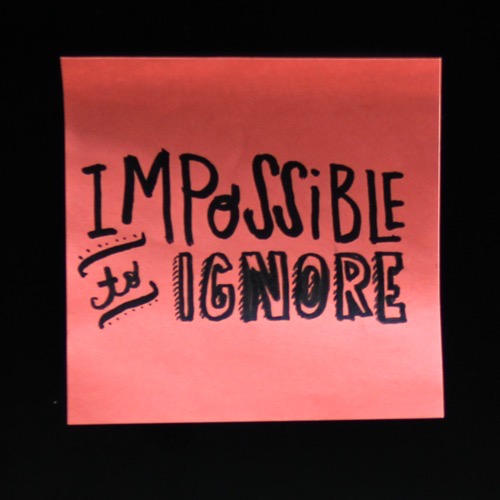 IMPoSSiBLE
to IGNORE